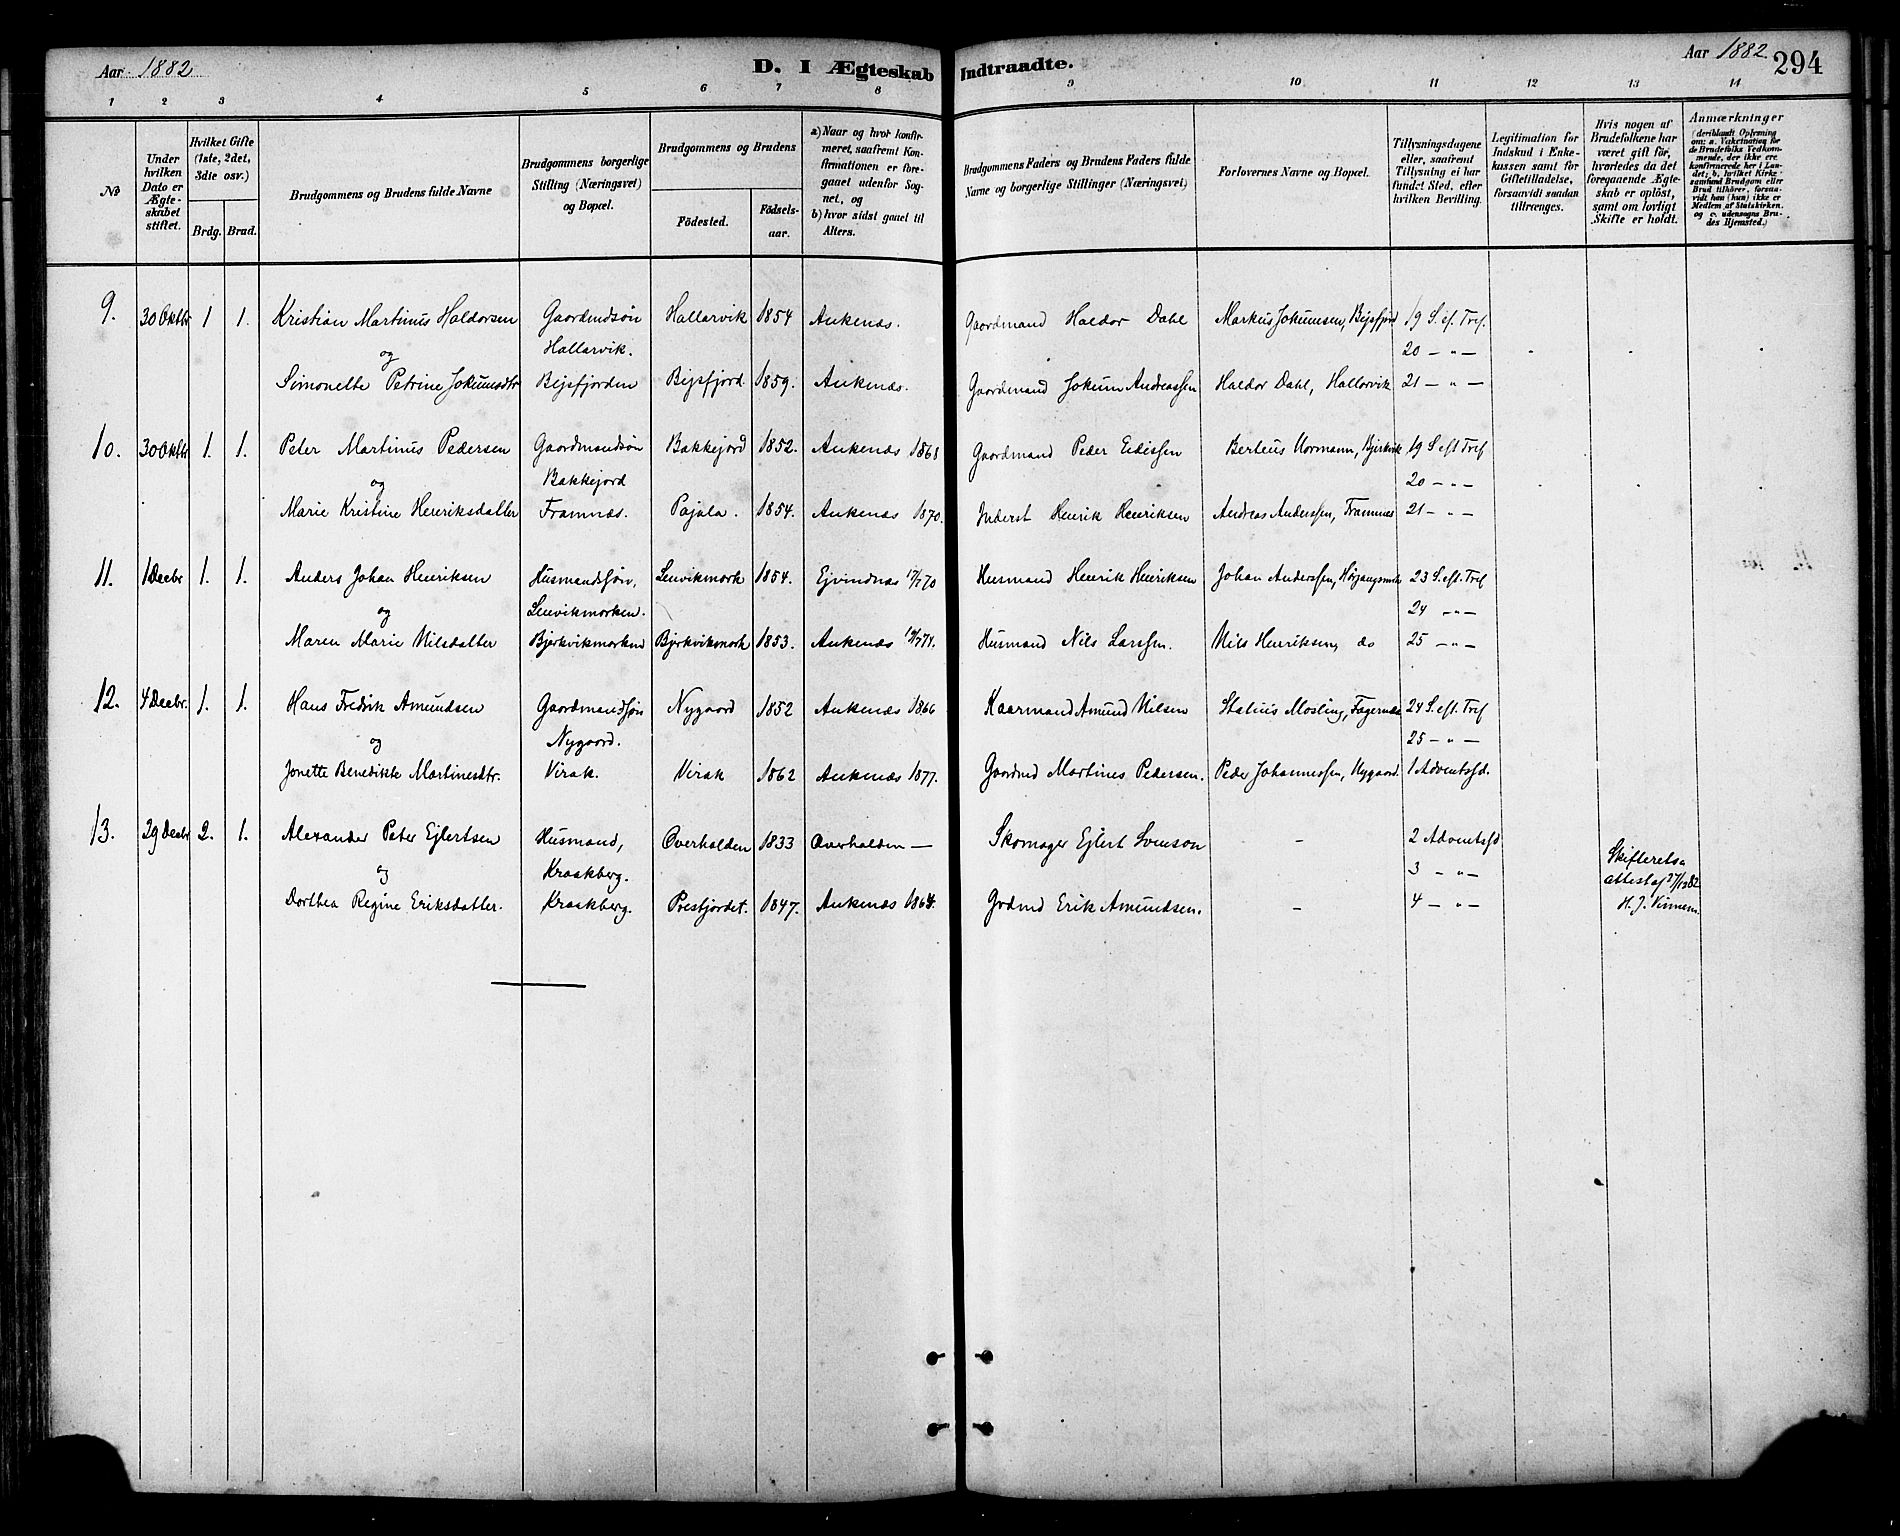 Aar 1882
D. I Ægteskab Indtraadte.
Aar 1882. 294
1 2 3 4 5 6 7 8 9 10 11 12 13 14
No
Under hvilken Dato er Ægteskabet stiftet.
Hvilket Gifte (1ste, 2det, 3die osv.)
Brdg. Brud.
Brudgommens og Brudens fulde Navne
Brudgommens borgerlige Stilling (Næringsvei) og Bopæl.
Brudgommens og Brudens
Födested.
Födselsaar.
a) Naar og hvor konfirmeret, saafremt Konfirmationen er foregaaet udenfor Sognet, og
b) hvor sidst gaaet til Alters.
Brudgommens Faders og Brudens Faders fulde Navne og borgerlige Stillinger (Næringsvei)
Forlovernes Navne og Bopæl.
Tillysningsdagene eller, saafremt Tillysning ei har fundet Sted, efter hvilken Bevilling.
Legitimation for Indskud i Enkekassen samt for Giftetilladelse, forsaavidt saadan tiltrænges.
Hvis nogen af Brudefolkene har været gift för, hvorledes da det foregaaende Ægteskab er oplöst, samt om lovligt Skifte er holdt.
Anmærkninger
(deriblandt Oplysning om: a. Vakcination for de Brudefolks Vedkommende, der ikke ere konfirmerede her i Landet; b. hvilket Kirkesamfund Brudgom eller Brud tilhörer, forsaavidt han (hun) ikke er Medlem af Statskirken, og c. udensogns Brudes Hjemsted.)
9. 30 Oktbr 1 1. Kristian Martinus Haldorsen Gaardmdsøn Hallarvik 1854 Ankenæs. Gaardmand Haldor Dahl Markus Jokumsen, Bejsfjord 19 S. ef. Tref.
og Hallarvik. 20 — " —
Simonette Petrine Jokumsdtr Bejsfjorden Bejsfjord 1859. Ankenæs. Gaardmand Jokum Andreassen Haldor Dahl, Hallarvik 21 — " —
10. 30 Oktbr 1. 1. Peter Martinus Pedersen Gaardmandsøn Bakkejord 1852. Ankenæs 1868 Gaardmand Peder Eidissen Berteus Normann, Bjerkvik 19 S. eft Tref
og Bakkejord 20 — " —
Marie Kristine Henriksdatter Framnæs. Pajala. 1854. Ankenæs 1870. Inderst Henrik Henriksen Andreas Anderssen, Framnæs 21 — " —
11. 1 Decbr 1. 1. Anders Johan Henriksen Husmandssøn, Lenvikmark 1854. Ejvindnæs 17/7 70 Husmand Henrik Henriksen Johan Anderssen, 23 S. eft. Tref
og Lenvikmarken. 24 — " —
Maren Marie Nilsdatter Bjerkvikmarken Bjerkvikmark 1853. Ankenæs Husmand Nils Larssen. Nils Henriksen, do 25 — " —
12. 4 Decbr. 1. 1. Hans Fredrik Amundsen Gaardmandssøn Nygaard 1852 Ankenæs 1866 Kaarmand Amund Nilsen Statius Mosling, Fagernæs 24 S. eft. Tref
og Nygaard. 25 — " —
Jonette Benedikte Martinesdtr. Virak. Virak 1862 Ankenæs 1877. Gaardmd Martines Pedersen. Peder Johannessen, Nygaard. 1 Adventssd.
13. 29 Decbr 2. 1. Alexander Peter Ejlertsen Husmand, Overhalden 1833 Overhalden — Skomager Ejlert Svenson - 2 Adventssd
og Kraakberg. 3 - " - Skifterets attest af 27/12 82
Dorthea Regine Eriksdatter. Kraakberg. Presfjordet. 1847. Ankenæs 1864. Grdmd Erik Amundsen. - 4 — " — H. J.